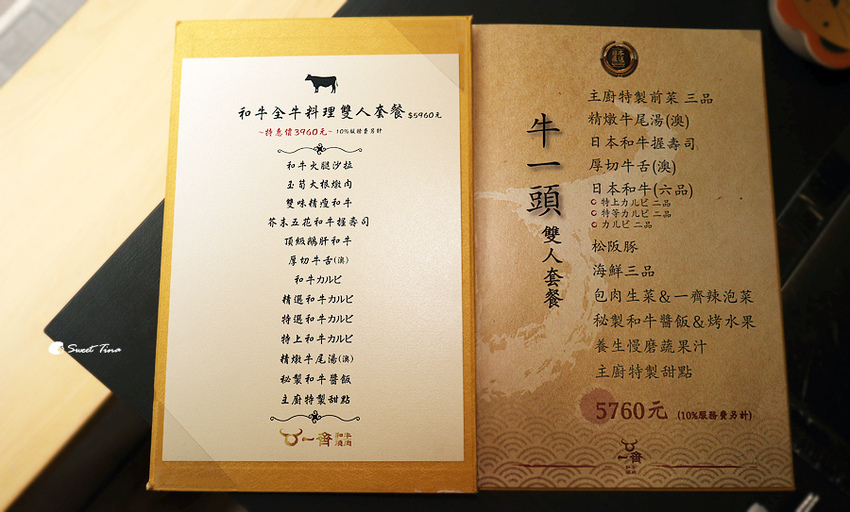 和牛全牛料理雙人套餐 $5960元
~特惠價3960元~ 10%服務費另計
和牛火腿沙拉
玉筍大根燉肉
雙味精瘦和牛
芥末五花和牛握壽司
頂級鵝肝和牛
厚切牛舌(澳)
和牛カルビ
精選和牛カルビ
特選和牛カルビ
特上和牛カルビ
精燉牛尾湯(澳)
秘製和牛醬飯
主廚特製甜點
一齊 和牛燒肉
牛一頭 雙人套餐
主廚特製前菜 三品
精燉牛尾湯(澳)
日本和牛握壽司
厚切牛舌(澳)
日本和牛(六品)
特上カルビ 二品
特等カルビ 二品
カルビ 二品
松阪豚
海鮮三品
包肉生菜&一齊辣泡菜
秘製和牛醬飯&烤水果
養生慢磨蔬果汁
主廚特製甜點
5760元 (10%服務費另計)
一齊
Sweet Tina